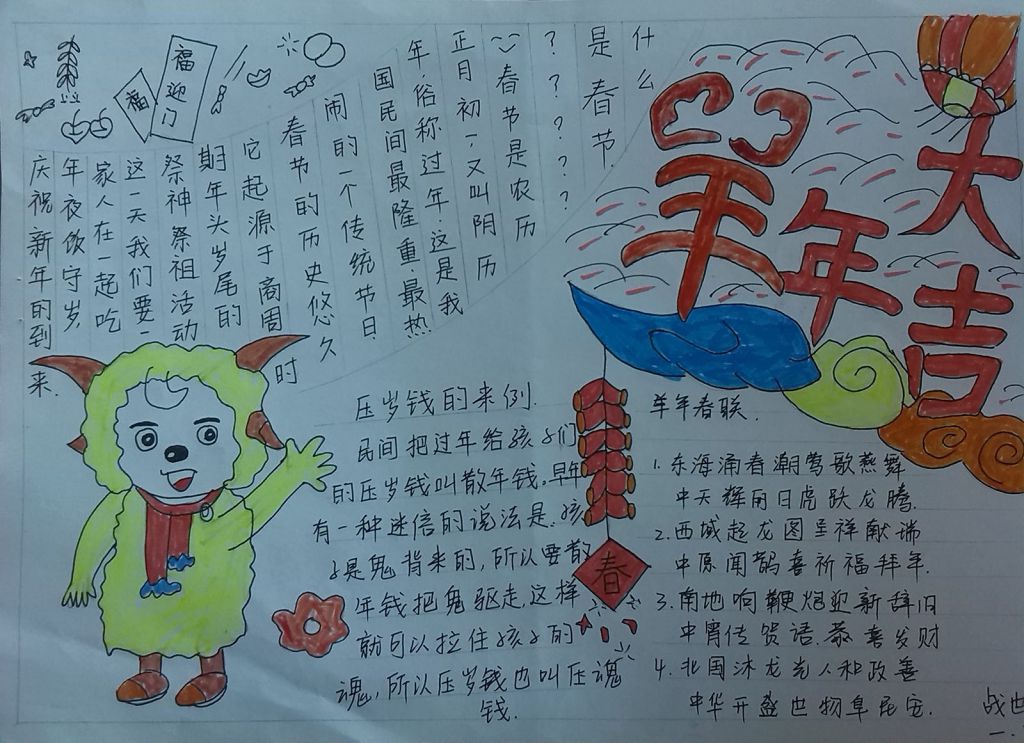 羊年大吉
什么
是春节
??????
春节是农历
正月初一,又叫阴历
年,俗称过年.这是我
国民间最隆重最热
闹的一个传统节日
春节的历史悠久
它起源于商周时
期年头岁尾的
祭神祭祖活动
这一天我们要一
家人在一起吃
年夜饭守岁,
庆祝新年的到来.
福迎门
福
压岁钱的来例.
民间把过年给孩子们
的压岁钱叫散年钱,早年
有一种迷信的说法是,孩
子是鬼背来的,所以要散
年钱把鬼驱走,这样
就可以拉住孩子的
魂,所以压岁钱也叫压魂
钱.
春
羊年春联.
1.东海涌春潮莺歌燕舞
中天辉丽日虎跃龙腾.
2.西域起龙图呈祥献瑞
中原闻鹊喜祈福拜年.
3.南地响鞭炮迎新辞旧
中宵传贺语.恭喜发财
4.北国沐龙光人和政善
中华开盛世物阜民宝.
战也
一.